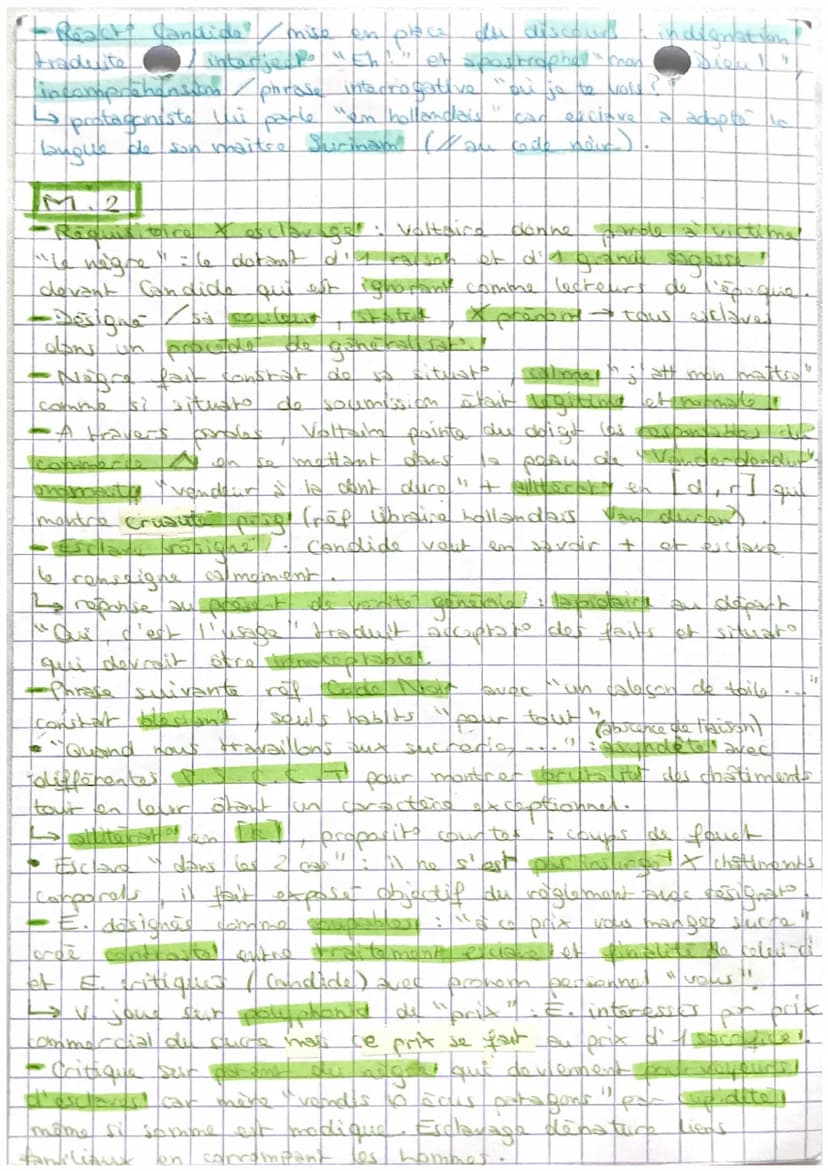 - Réact° Candide / mise en place du discours : indignation
traduite / interject° "Eh !" et apostrophe "mon Dieu !",
incompréhension / phrase interrogative "où je te vois ?"
↳ protagoniste lui parle "en hollandais" car esclave a adopté la
langue de son maître Surinam (// au code noir).
M.2
- Réquisitoire X esclavage : Voltaire donne parole à victime
"le nègre" : le dotant d'1 raison et d'1 grande sagesse
devant Candide qui est ignorant comme lecteurs de l'époque.
- Désigné / sa couleur, statut, X prénom → tous esclaves
dans un procédé de généralisat°.
- Nègre fait constat de sa situat°, calme "j'att mon maître"
comme si situat° de soumission était légitime et normale.
- A travers paroles, Voltaire pointe du doigt les responsables du
commerce Δ en se mettant dans la peau de "Vanderdendur".
"vendeur à la dent dure" + allitérat° en [d, r] qui
montre cruauté perso (réf libraire hollandais Van duren).
- Esclave résigné : Candide veut en savoir + et esclave
le renseigne calmement.
↳ réponse au présent de vérité générale : lapidaire au départ
"Oui, c'est l'usage" traduit acceptat° des faits et situat°
qui devrait être inacceptable.
- Phrase suivante réf Code Noir avec "un caleçon de toile ..."
constat blessant, seuls habits "pour tout"
(absence de liaison)
• "Quand nous travaillons aux sucreries ..." : asyndète avec
différentes P.S.C.C.T pour montrer brutalité des châtiments
tout en leur ôtant un caractère exceptionnel.
↳ allitérat° en [k], proposit° courtes : coups de fouet
• Esclave "dans les 2 cas" : il ne s'est pas insurgé X châtiments
corporels, il fait exposé objectif du règlement avec résignat°.
- E. désignés comme coupables : "à ce prix vous mangez sucre"
créé contraste entre traitement esclave et finalité de celui-ci
et E. critiqués (Candide) avec pronom personnel "vous".
↳ V. joue sur polyphonie de "prix" : E. intéressés par prix
commercial du sucre mais ce prix se fait au prix d'1 sacrifice.
- Critique sur parent du nègre qui deviennent pourvoyeurs
d'esclaves car mère "vendis 10 écus patagons" par cupidité
même si somme est modique. Esclavage dénature liens
familiaux en corrompant les hommes.